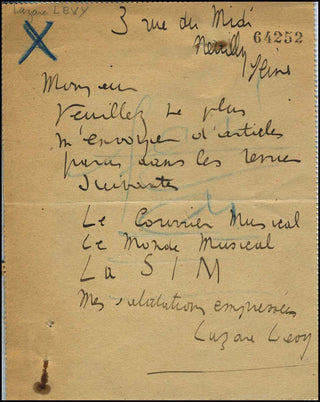 Lazare LEVY
3 rue du Midi
Neuilly 64252
Seine
Monsieur
Veuillez ne plus
m'envoyer d'articles
parus dans les revues
suivantes
Le Courrier Musical
Le Monde Musical
La SIM
Mes salutations empressées
Lazare Levy